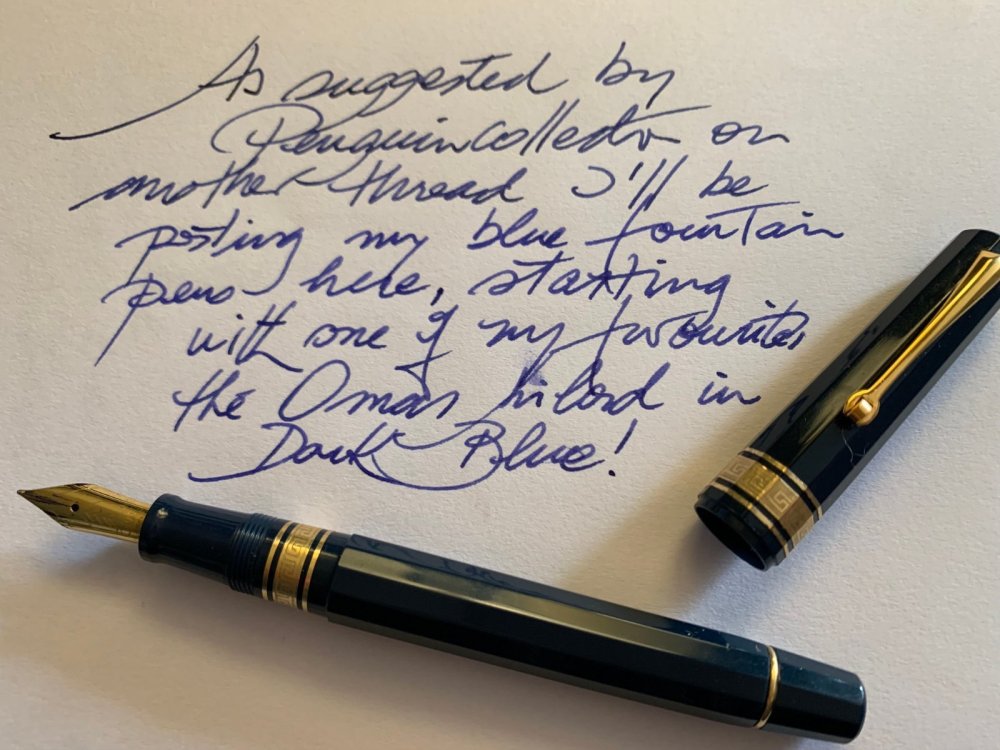 As suggested by
Penguincollector on
another thread I'll be
posting my blue fountain
pens here, starting
with one of my favourites
the Omas in
Dark Blue!